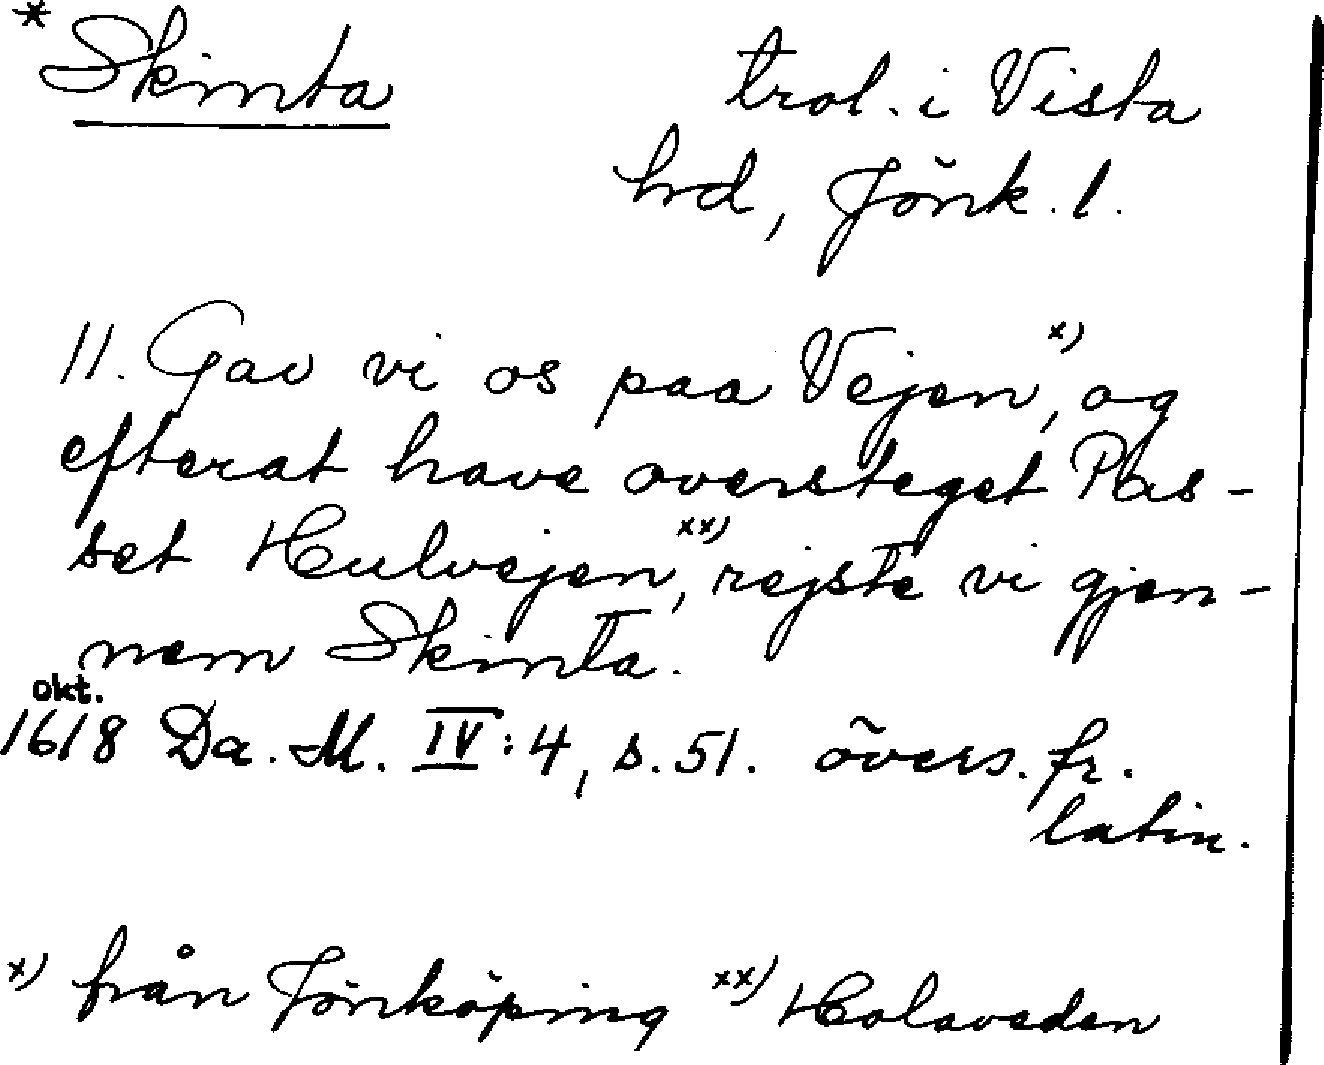 * Skinta trol. i Vista
hrd, Jönk. l.
11. Gav vi os paa Vejen,x) og
efterat have oversteget Pas-
set Hulvejen,xx) rejste vi gjen-
nem Skinta.
okt.
1618 Da. M. IV: 4, s. 51. övers. fr.
latin.
x) från Jönköping xx) Holaveden